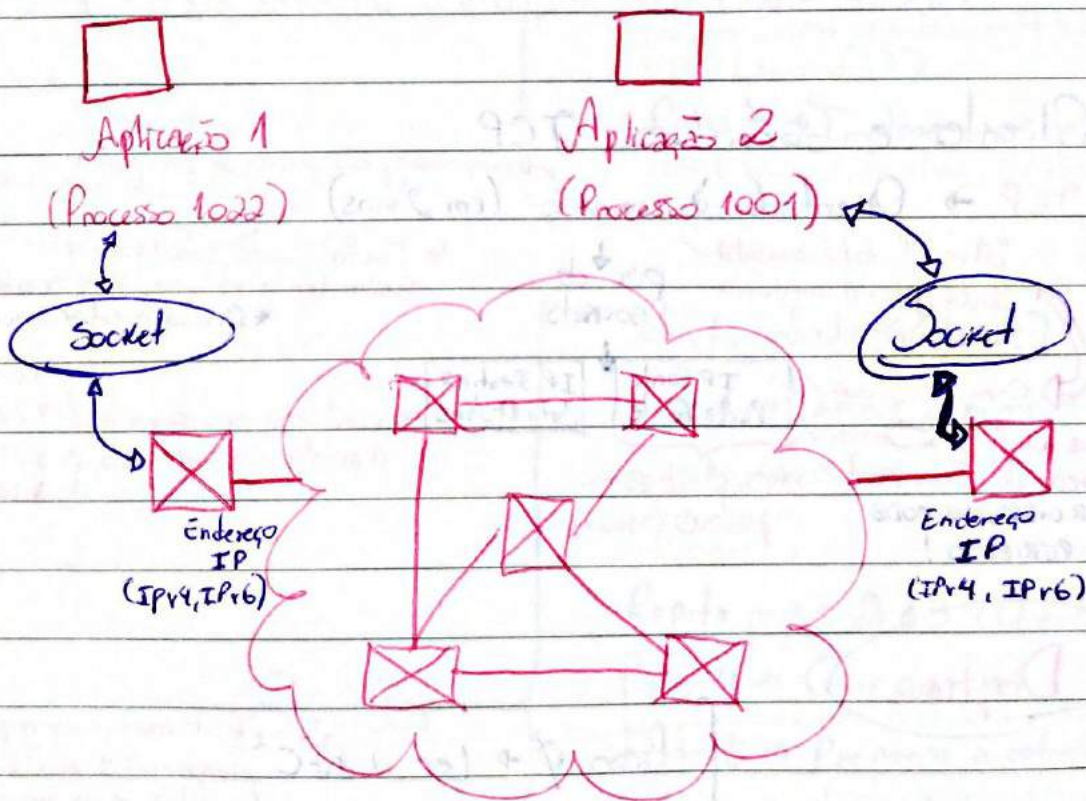 Aplicação 1
(Processo 1022)
Socket
Endereço
IP
(IPv4, IPv6)
Aplicação 2
(Processo 1001)
Socket
Endereço
IP
(IPv4, IPv6)